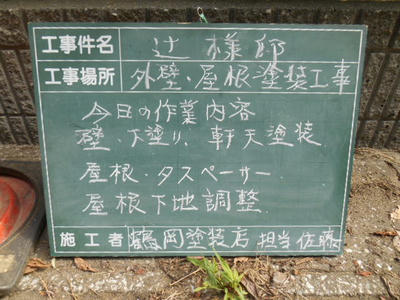 工事件名 辻様邸
工事場所 外壁・屋根塗装工事
今日の作業内容
壁・下塗り、軒天塗装
屋根・タスペーサー
屋根下地調整
施工者 鶴岡塗装店 担当 佐藤